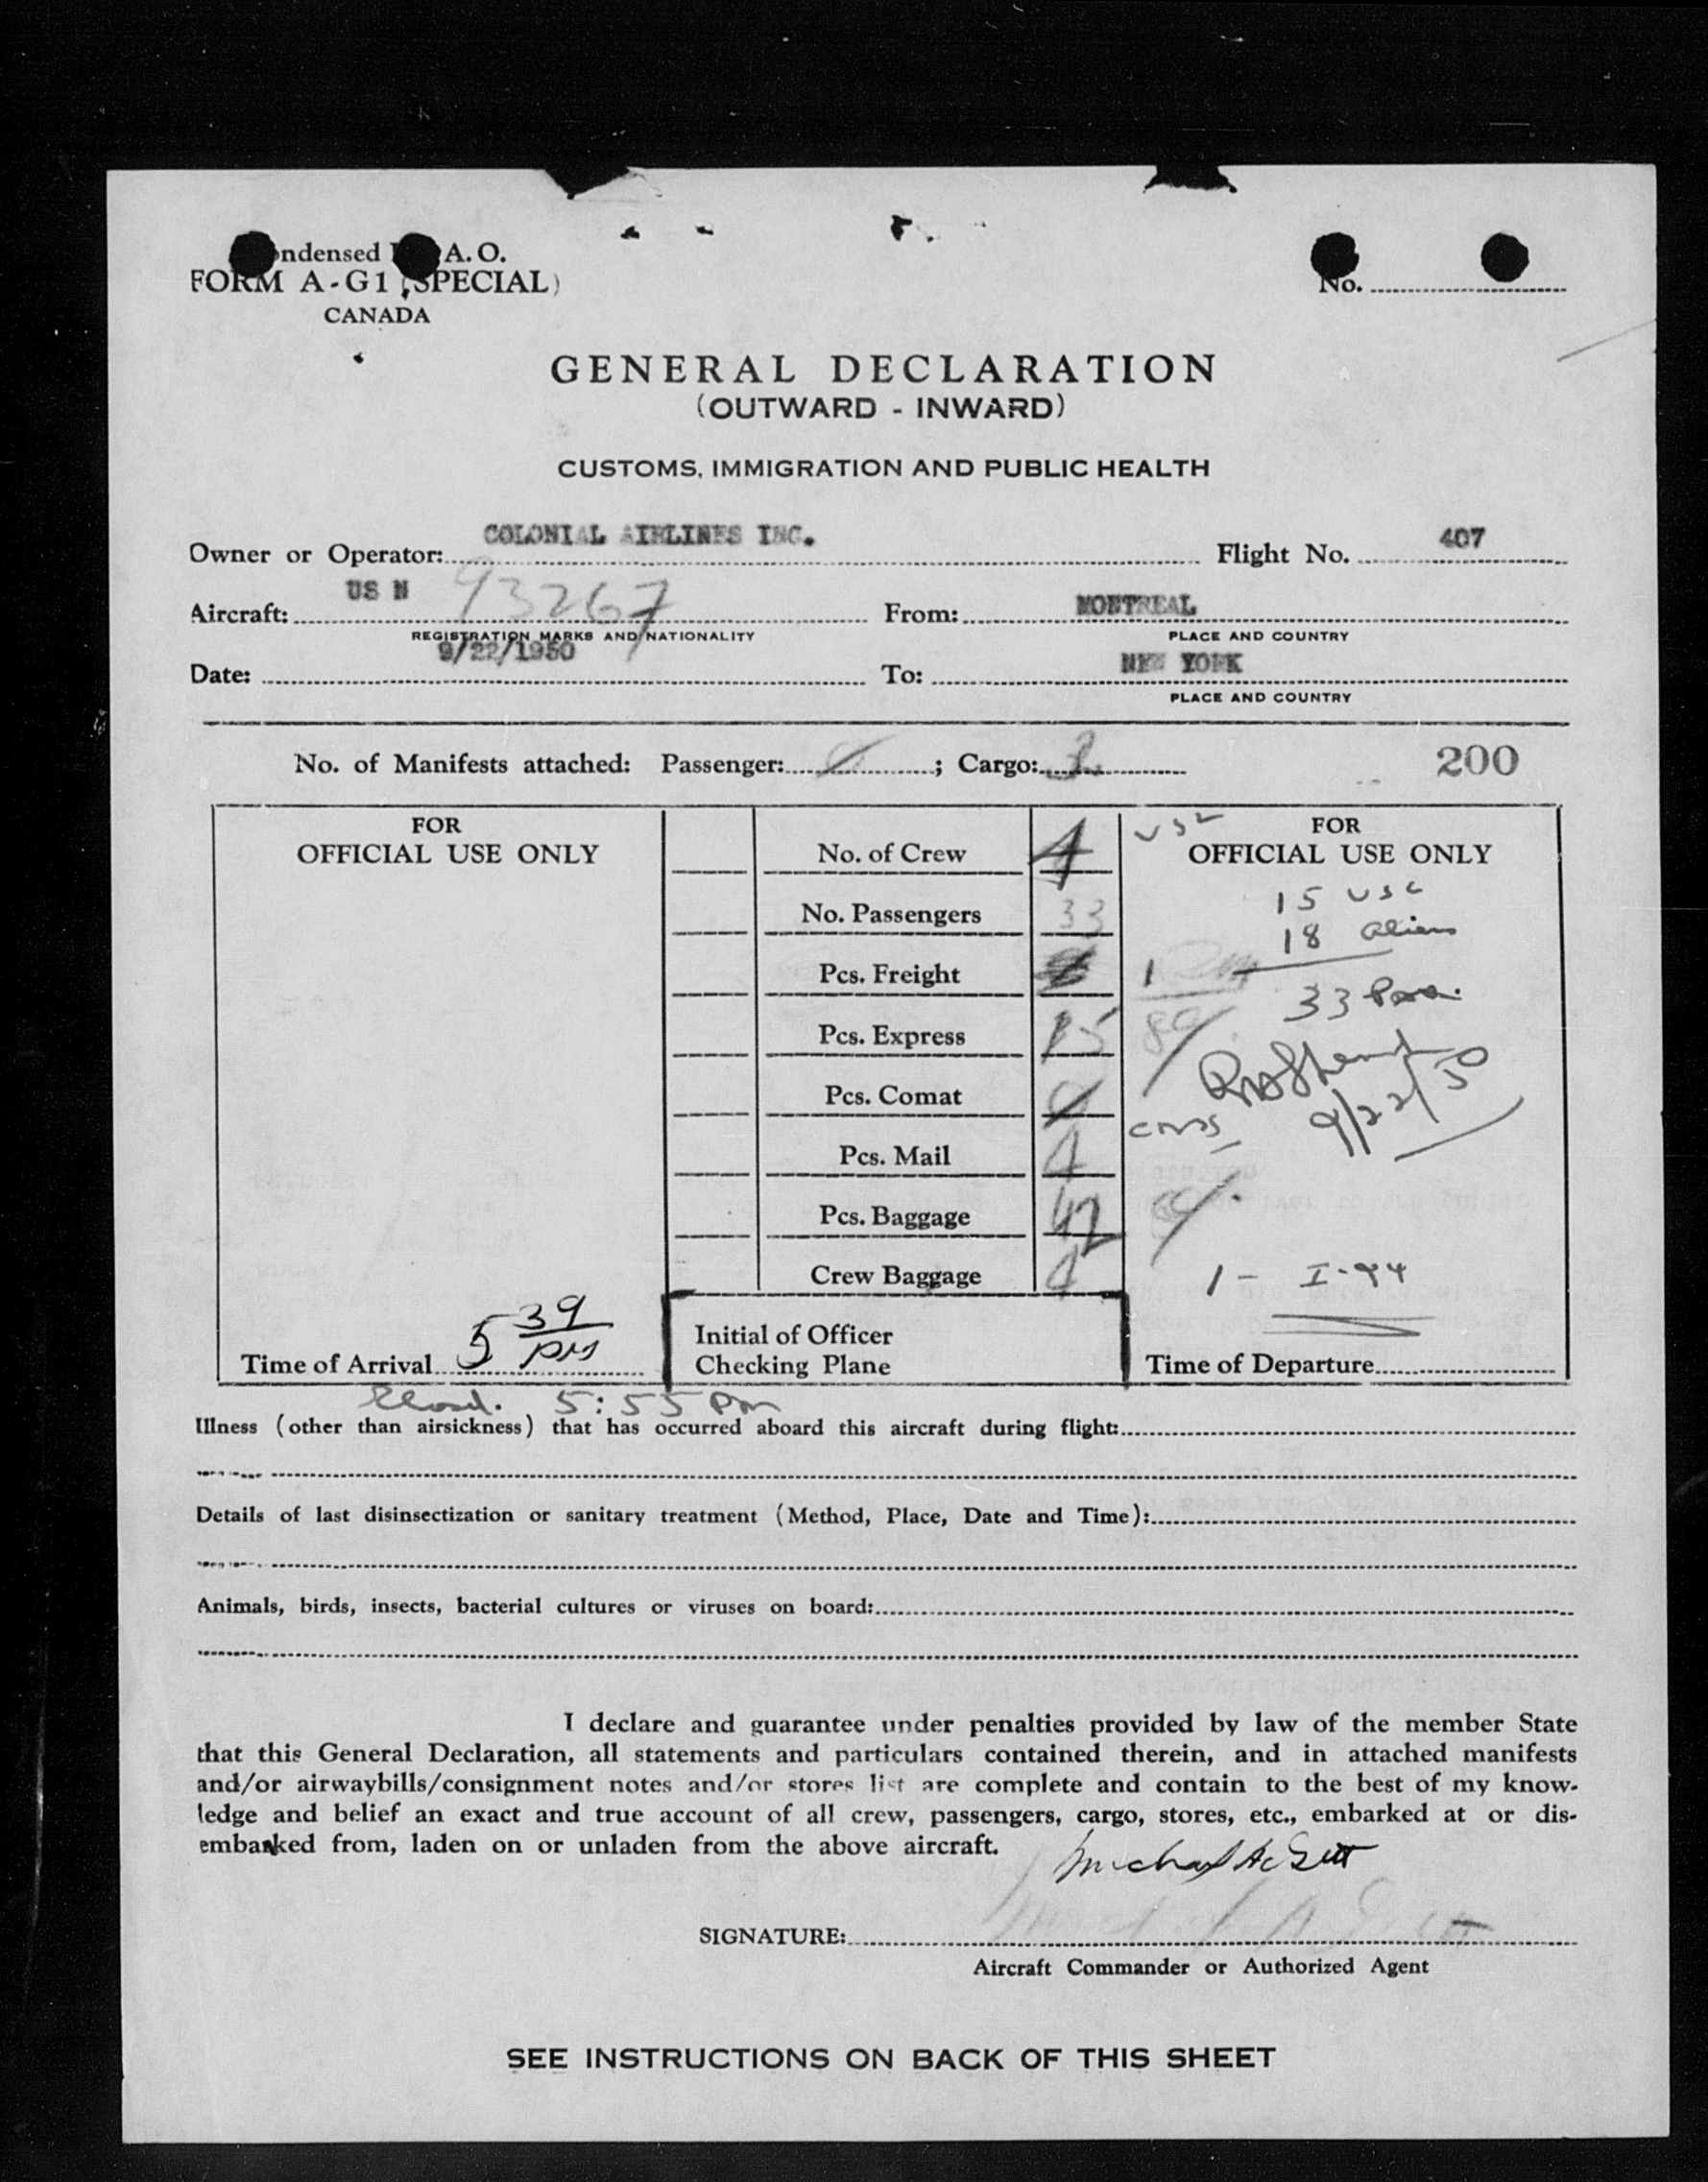 ndensed A. O.
FORM A-G1 (SPECIAL)
CANADA
No.
GENERAL DECLARATION
(OUTWARD - INWARD)
CUSTOMS, IMMIGRATION AND PUBLIC HEALTH
Owner or Operator: COLONIAL AIRLINES INC. Flight No. 407
Aircraft: US N 93267 From: MONTREAL
REGISTRATION MARKS AND NATIONALITY PLACE AND COUNTRY
Date: 9/22/1950 To: NEW YORK
PLACE AND COUNTRY
No. of Manifests attached: Passenger: ; Cargo: 200
FOR
OFFICIAL USE ONLY
No. of Crew 4 USC
No. Passengers 33
Pcs. Freight 1
Pcs. Express 15
Pcs. Comat
Pcs. Mail 4
Pcs. Baggage 42
Crew Baggage 4
FOR
OFFICIAL USE ONLY
15 USC
18 Aliens
33 Pass.
9/22/50
1 - I-94
Time of Arrival 5 39 PM
Initial of Officer
Checking Plane
Time of Departure
Closed. 5:55 Pm
Illness (other than airsickness) that has occurred aboard this aircraft during flight:
Details of last disinsectization or sanitary treatment (Method, Place, Date and Time):
Animals, birds, insects, bacterial cultures or viruses on board:
I declare and guarantee under penalties provided by law of the member State
that this General Declaration, all statements and particulars contained therein, and in attached manifests
and/or airwaybills/consignment notes and/or stores list are complete and contain to the best of my know-
ledge and belief an exact and true account of all crew, passengers, cargo, stores, etc., embarked at or dis-
embarked from, laden on or unladen from the above aircraft.
SIGNATURE:
Aircraft Commander or Authorized Agent
SEE INSTRUCTIONS ON BACK OF THIS SHEET